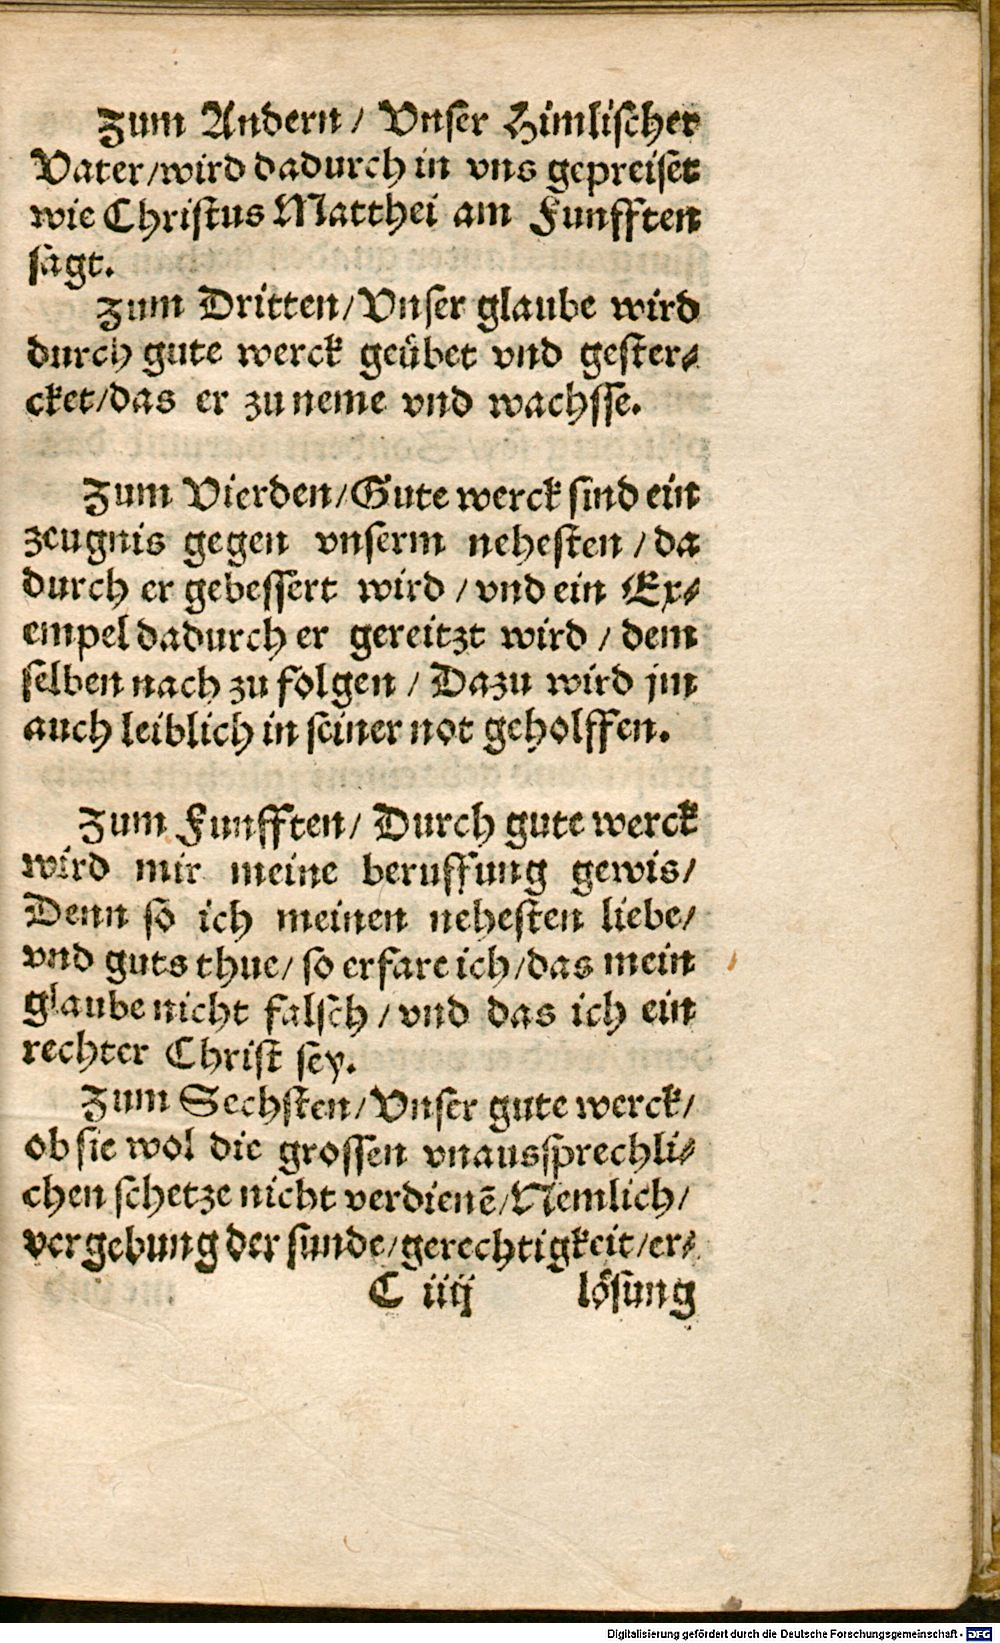 Zum Andern / Vnser Himlischer
Vater/wird dadurch in vns gepreiset
wie Christus Matthei am Funfften
sagt.
Zum Dritten/Vnser glaube wird
durch gute werck geübet vnd gester⸗
cket/das er zu neme vnd wachsse.
Zum Vierden/Gute werck sind ein
zeugnis gegen vnserm nehesten / da
durch er gebessert wird / vnd ein Ex⸗
empel dadurch er gereitzt wird / dem
selben nach zu folgen / Dazu wird jm
auch leiblich in seiner not geholffen.
Zum Funfften/ Durch gute werck
wird mir meine beruffung gewis/
Denn so ich meinen nehesten liebe/
vnd guts thue/ so erfare ich/das mein
glaube nicht falsch / vnd das ich ein
rechter Christ sey.
Zum Sechsten/Vnser gute werck/
ob sie wol die grossen vnaussprechli⸗
chen schetze nicht verdienē/Nemlich/
vergebung der sunde/gerechtigkeit/er⸗
C iiij lösung
Digitalisierung gefördert durch die Deutsche Forschungsgemeinschaft - DFG